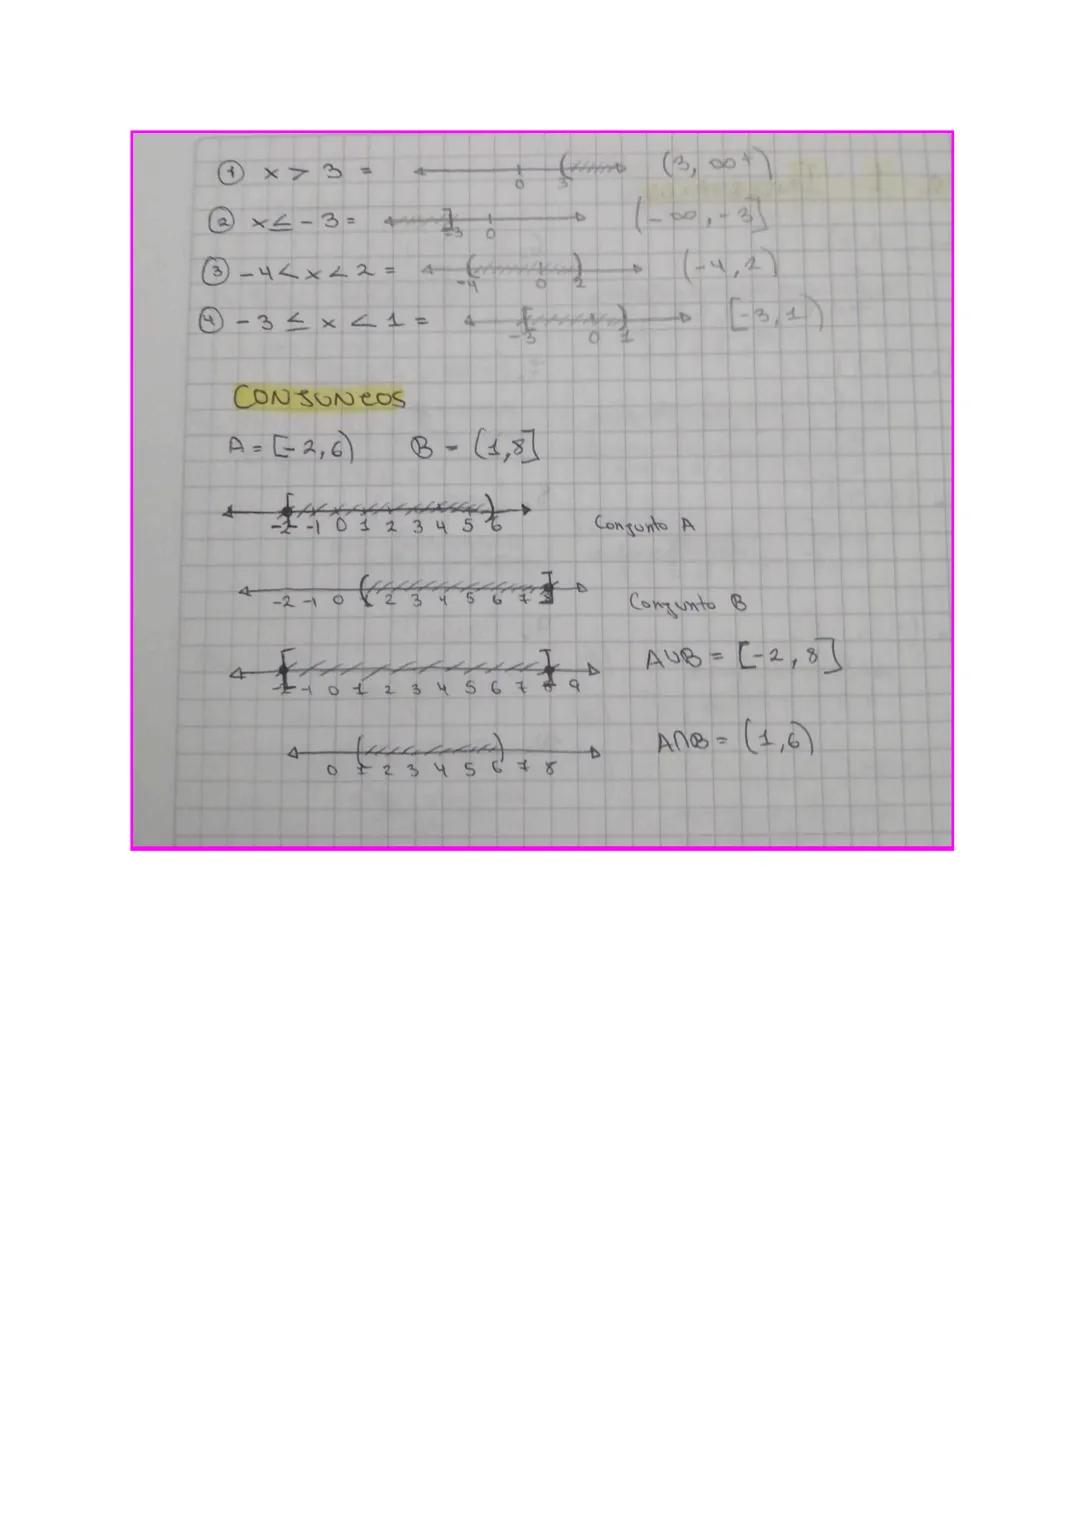 ① x > 3 = 0 3 (3, ∞+)
② x ≤ - 3 = -3 0 (-∞, -3]
③ -4 < x < 2 = -4 0 2 (-4, 2)
④ -3 ≤ x < 1 = -3 0 1 [-3, 1)
CONJUNTOS
A = [-2, 6) B = (1, 8]
-2 -1 0 1 2 3 4 5 6 Conjunto A
-2 -1 0 1 2 3 4 5 6 7 8 Conjunto B
-2 -1 0 1 2 3 4 5 6 7 8 9 A∪B = [-2, 8]
0 1 2 3 4 5 6 7 8 A∩B = (1, 6)